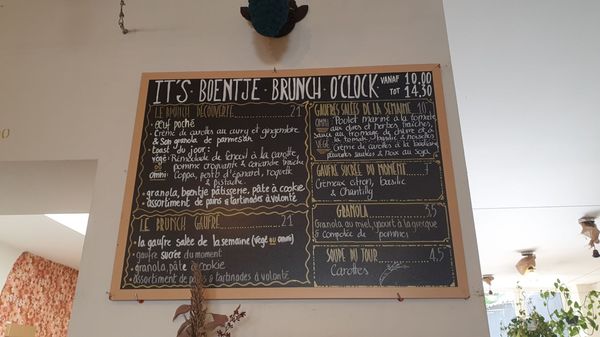 IT'S · BOENTJE · BRUNCH · O'CLOCK VANAF 10.00
TOT 14.30
LE BRUNCH DÉCOUVERTE 21
• œuf poché
Crème de carottes au curry et gingembre
& son granola de parmesan
• toast du jour:
végé: Rémoulade de fenouil à la carotte,
pomme croquante & coriandre fraîche
omni: Coppa, pesto d'épinard, roquette
& pistache
• granola, boentje pâtisserie, pâte à cookie
• assortiment de pains & tartinades à volonté
LE BRUNCH GAUFRE 21
• la gaufre salée de la semaine (végé ou omni)
• gaufre sucrée du moment
• granola, pâte à cookie
• assortiment de pains & tartinades à volonté
GAUFRES SALÉES DE LA SEMAINE 10
OMNI Poulet mariné à la tomate
aux épices et herbes fraîches,
Sauce au fromage de chèvre et à
la tomate
VÉGÉ
Crème de carottes
& Noix au Soja
GAUFRE SUCRÉE DU MOMENT 7
Crémeux citron, Basilic
& Chantilly
GRANOLA 8,5
Granola au miel, yaourt à la grecque
& compotée de pommes
SOUPE DU JOUR 4.5
Carottes